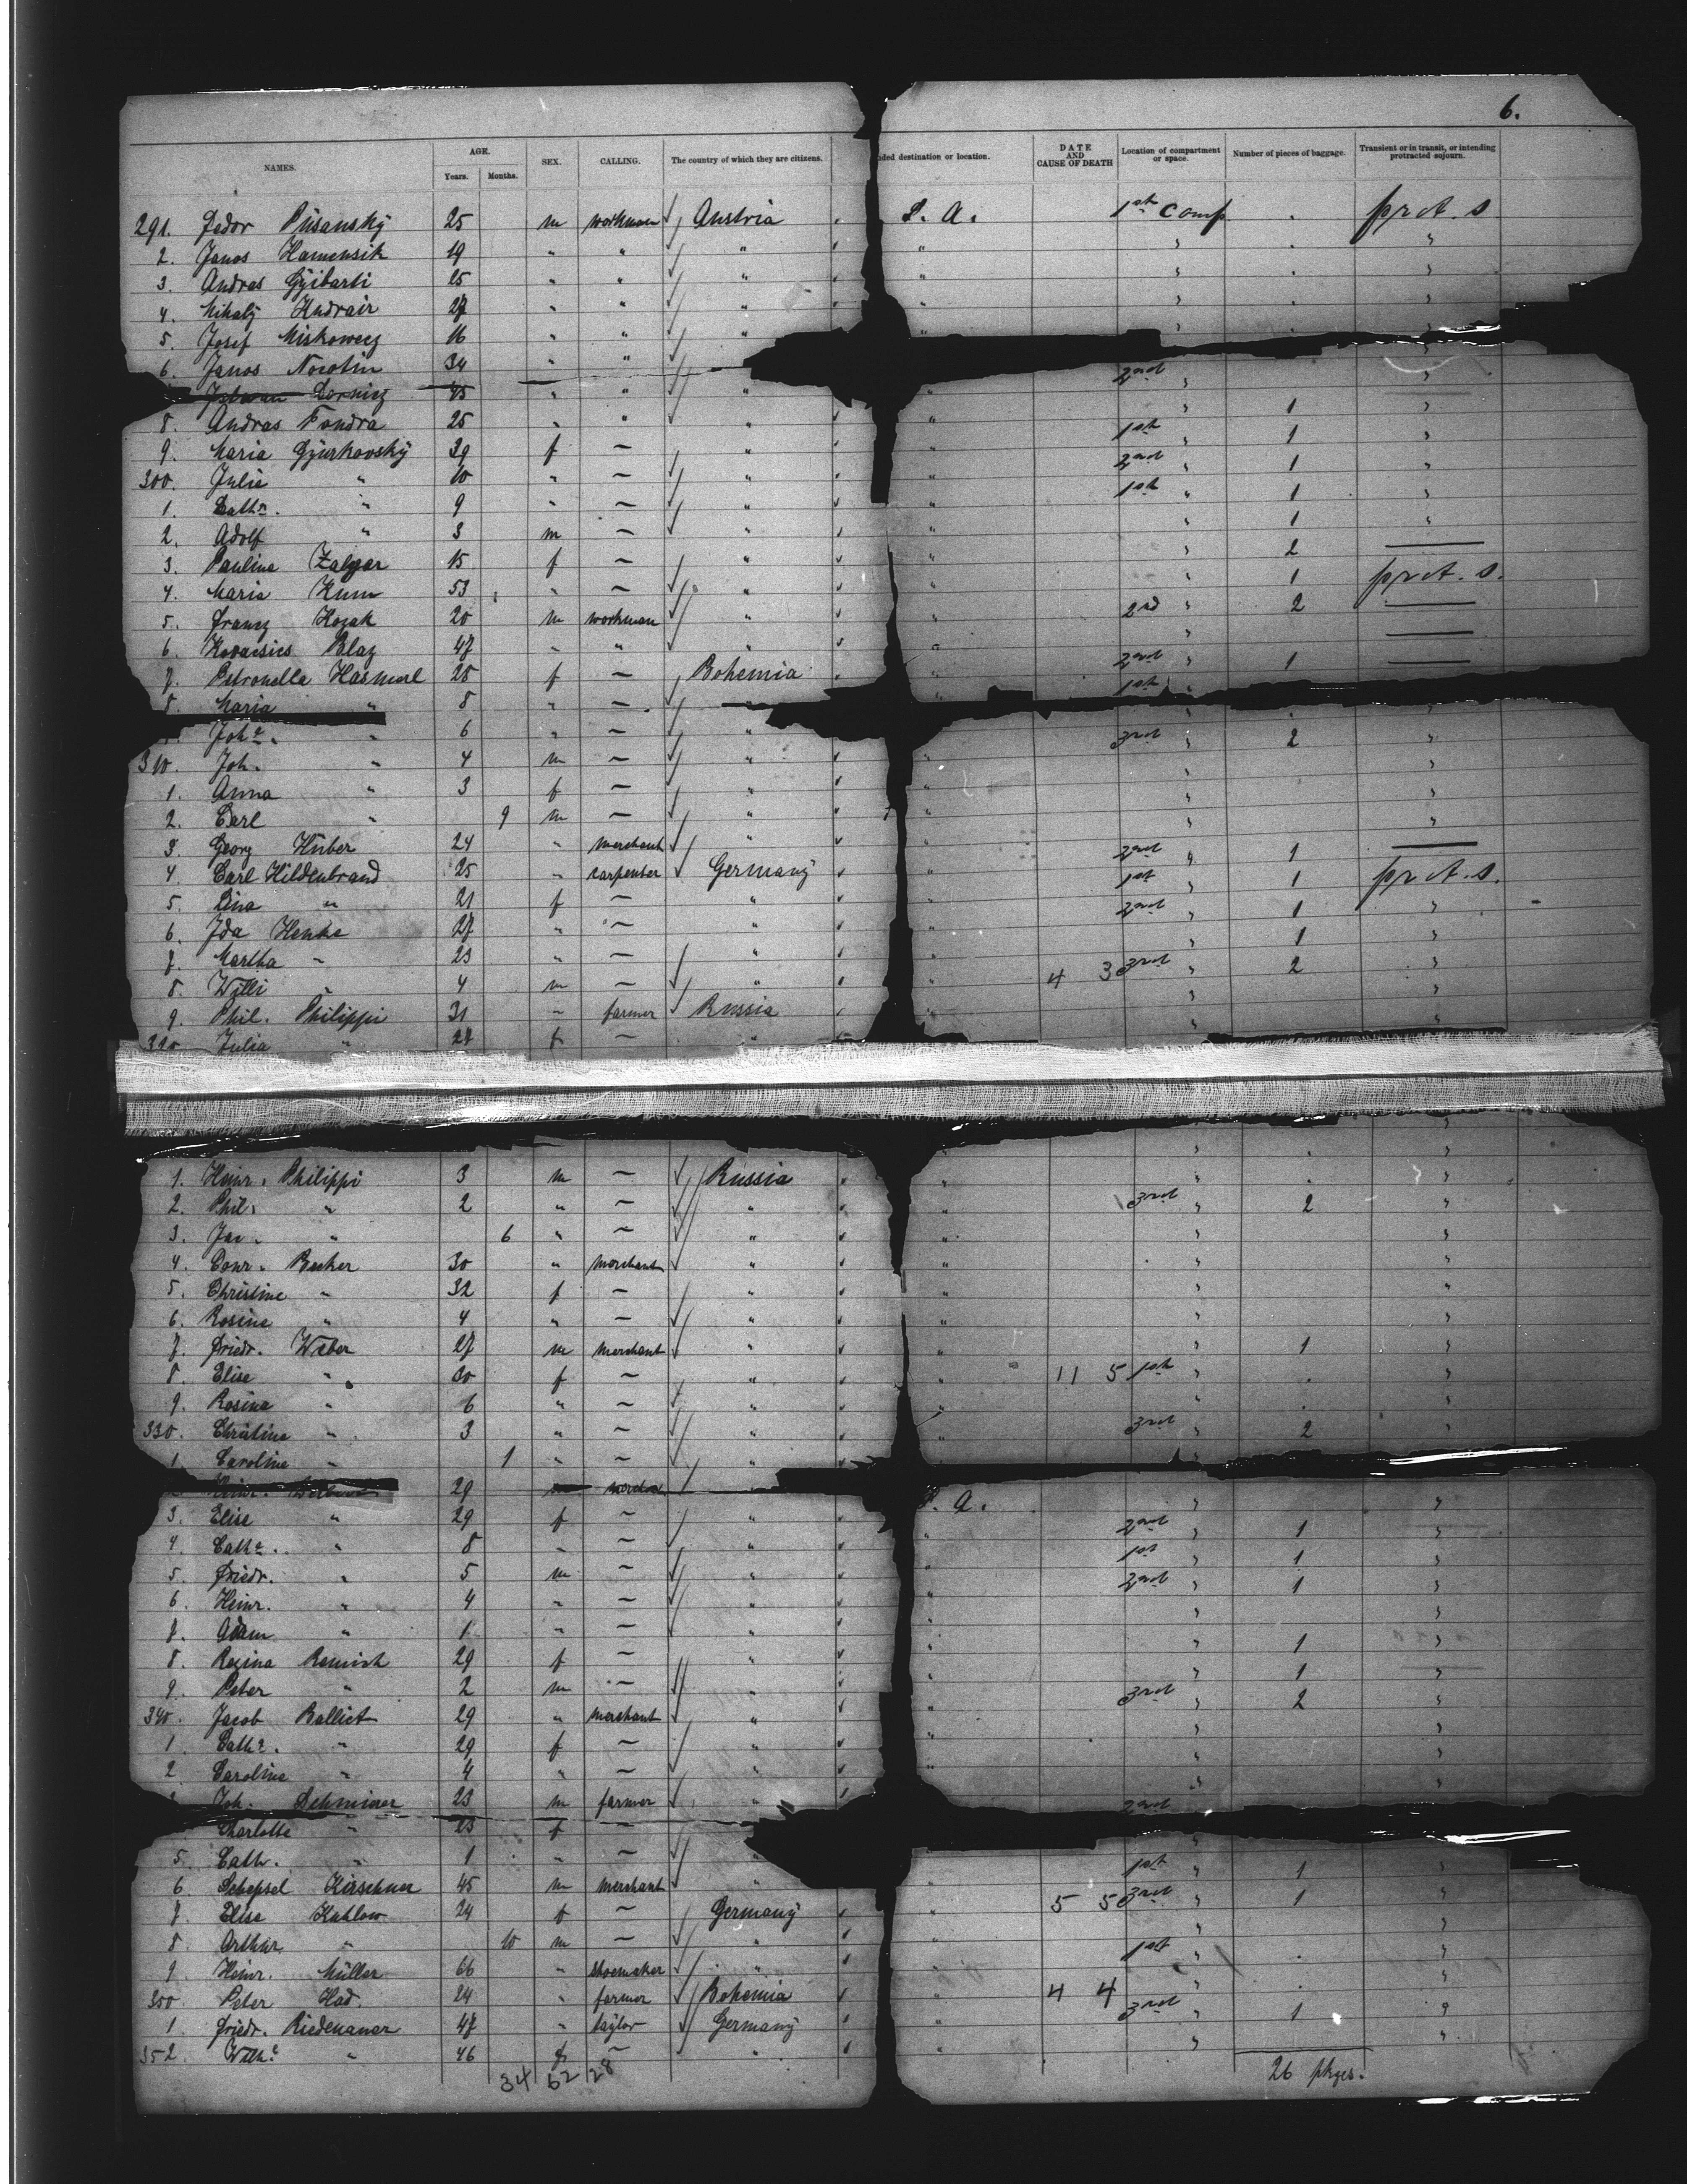 6.
NAMES. AGE. Years. Months. SEX. CALLING. The country of which they are citizens. ded destination or location. DATE AND CAUSE OF DEATH Location of compartment or space. Number of pieces of baggage. Transient or in transit, or intending protracted sojourn.
291. Fedor Pusansky 25 m workman Austria S. A. 1st comp. prct. s
2. Janos Hamensik 19 " " "
3. Andras Gyibarti 25 " " " "
4. Mihaly 27 " " "
5. Josef Miskowecz 16 " " " "
6. Janos Novotin 34 " " 2nd "
45 " " " "
8. Andras Fondra 25 " " " " 1 "
9. Maria Gyurkovsky 39 f — " " 1st " 1 "
300. Julia " 10 " — " " 2nd " 1 "
1. Cathr. " 9 " — " " 1st " 1 "
2. Adolf " 3 m — " " " 1 "
3. Pauline 15 f — " " " 2 —
4. Maria Kum 53 " — " " 1 prct. s.
5. Franz Kozak 20 m workman " " 2nd " 2 —
6. Kovacsics Blaz 47 " " " " " —
7. Petronella 28 f — Bohemia " 2nd 1 —
8. Maria " 8 " — " 1st "
Johe. " 6 " — " 3rd " 2 "
310. Joh. " 4 m — " " " "
1. Anna " 3 f — " " " "
2. Carl " 9 m — " " " "
3. Georg Huber 24 " merchant " 2nd " 1 —
4. Carl Hildenbrand 25 " carpenter Germany " 1st " 1 prct. s.
5. Lina " 21 f — " " 2nd " 1 "
6. Ida Henke 27 " — " " " 1 "
7. Martha " 23 " — " " 4 3 3rd " 2 "
8. Willi " 4 m — " " " "
9. Phil. Philippi 31 " farmer Russia " " "
320 Julia " 27 f — "
1. Heinr. Philippi 3 m — Russia " " "
2. Phil. " 2 " — " " 3rd " 2 "
3. Jac. " 6 " — " " " "
4. Conr. Becker 30 " merchant " " " "
5. Christine " 32 f — " " " "
6. Rosine " 4 " — " " " "
7. Friedr. Weber 27 m merchant " " " 1 "
8. Elise " 30 f — " " 11 5 1st " "
9. Rosina " 6 " — " " " "
330. Christine " 3 " — " " 3rd " 2 "
1. Caroline " 1 " — " "
Heinr. 29 m " S. A. " "
3. Elise " 29 f — " " 2nd 1 "
4. Cathe. " 8 " — " " 1st " 1 "
5. Friedr. " 5 m — " " 2nd " 1 "
6. Heinr. " 4 " — " " " "
7. Adam " 1 " — " " " 1 "
8. Regina Remish 29 f — " " " 1 "
9. Peter " 2 m — " " 3rd " 2 "
340. Jacob Balliet 29 " merchant " " " "
1. Cathe. " 29 f — " " " "
2. Caroline " 4 " — " " " "
Joh. 23 m farmer " 2nd
Charlotte " 23 f — "
5. Cath. " 1 " — " 1st " 1 "
6. Schepsel Kirschner 45 m merchant " " 5 5 3rd " 1 "
7. Elise Kahlow 24 f — Germany " " "
8. Arthur " 10 m — " " 1st " "
9. Heinr. Müller 66 " shoemaker " " " "
350 Peter Had. 24 " farmer Bohemia " 4 4 3rd " 1 "
1. Friedr. Riedenauer 47 " taylor Germany " " "
352. Wilhe. " 46 f — " "
34 62 28 26 pkges.